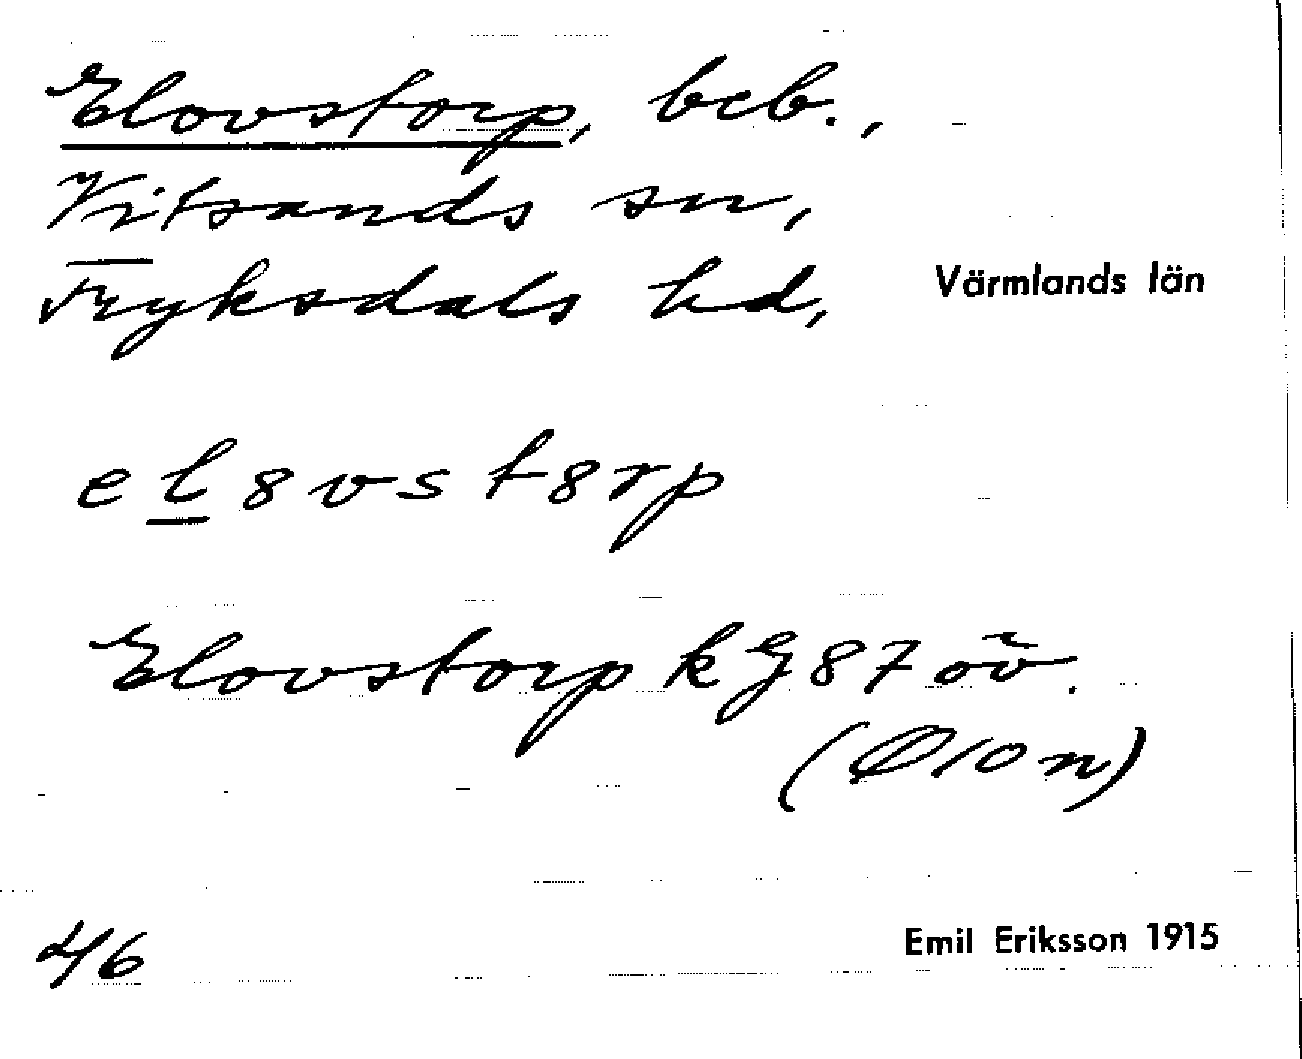 Elovstorp, beb.,
Vitsands sn,
Fryksdals hd, Värmlands län
el8vst8rp
Elovstorp kJ87öv.
(Ø10n)
46 Emil Eriksson 1915